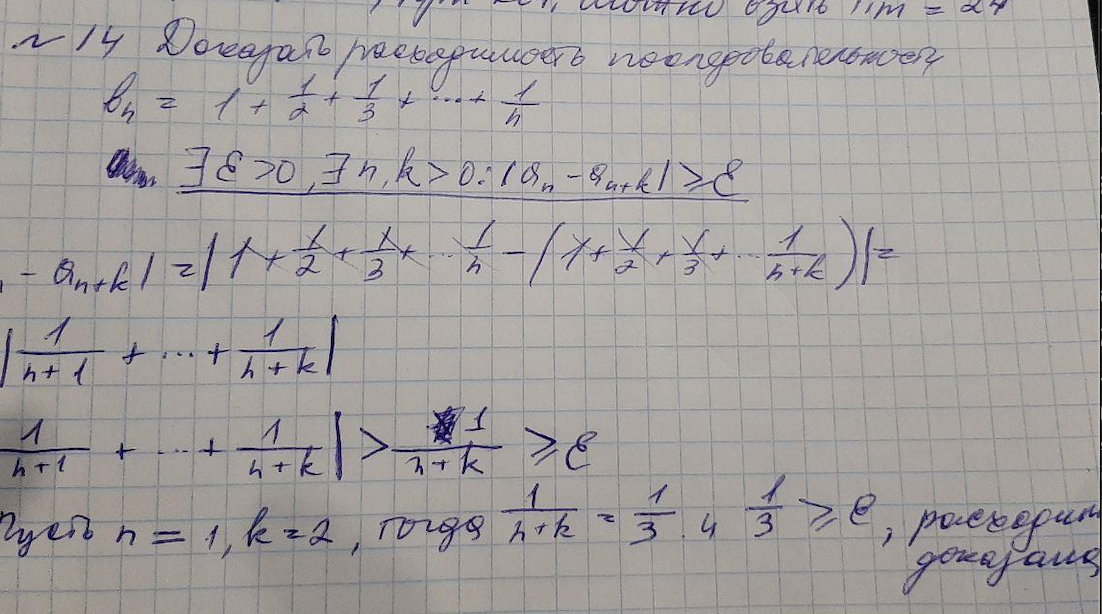 можно взять m = 24
№14 Доказать расходимость последовательность
bₙ = 1 + 1/2 + 1/3 + ... + 1/n
∃ε>0, ∃n,k>0: |aₙ - aₙ₊ₖ| ≥ ε
ₙ - aₙ₊ₖ| = |1 + 1/2 + 1/3 + ... 1/n - (1 + 1/2 + 1/3 + ... 1/(n+k))| =
|1/(n+1) + ... + 1/(n+k)|
1/(n+1) + ... + 1/(n+k)| > 1/(n+k) ≥ ε
Пусть n = 1, k = 2, тогда 1/(n+k) = 1/3 и 1/3 ≥ ε, расходим
доказана